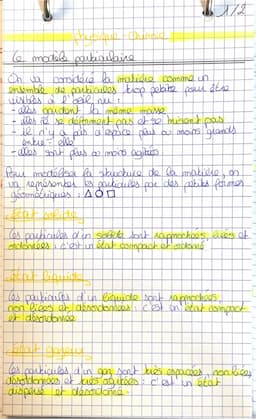 1/2
Physique-Chimie
Le modèle particulaire
On va considérer la matière comme un
ensemble de particules trop petite pour être
visibles à l'oeil nu :
- elles gardent la même masse
- elles ne se déforment pas et se brisent pas
- il n'y a pas d'espace plus ou moins grands
entre elle
- elles sont plus ou moins agitées
Pour modéliser la structure de la matière, on
va représenter les particules par des petites formes
géométriques : △ ○ □
État solide
Les particules d'un solide sont rapprochées, liées et
ordonnées : c'est un état compact et ordonné
État liquide
Les particules d'un liquide sont rapprochées,
non liées et désordonnées : c'est un état compact
et désordonnée
État gazeux
Les particules d'un gaz sont très espacées, non liées,
désordonnées et très agitées : c'est un état
dispersé et désordonné.